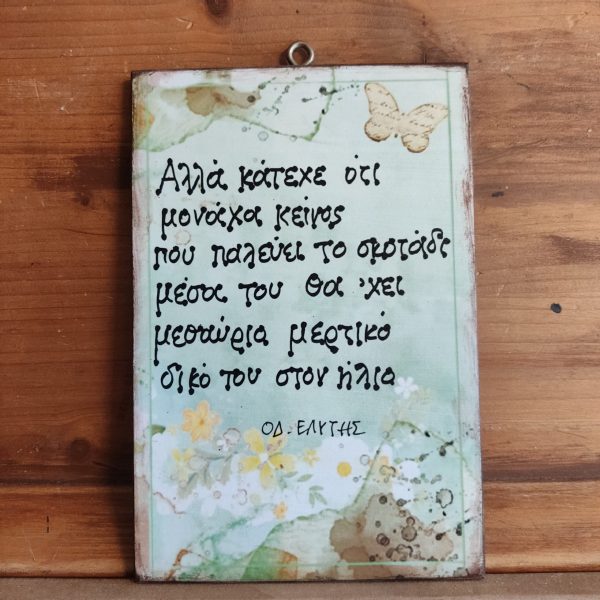 Αλλά κάτεχε ότι
μονάχα κείνος
που παλεύει το σκοτάδι
μέσα του θα 'χει
μεθαύριο μερτικό
δικό του στον ήλιο
ΟΔ. ΕΛΥΤΗΣ